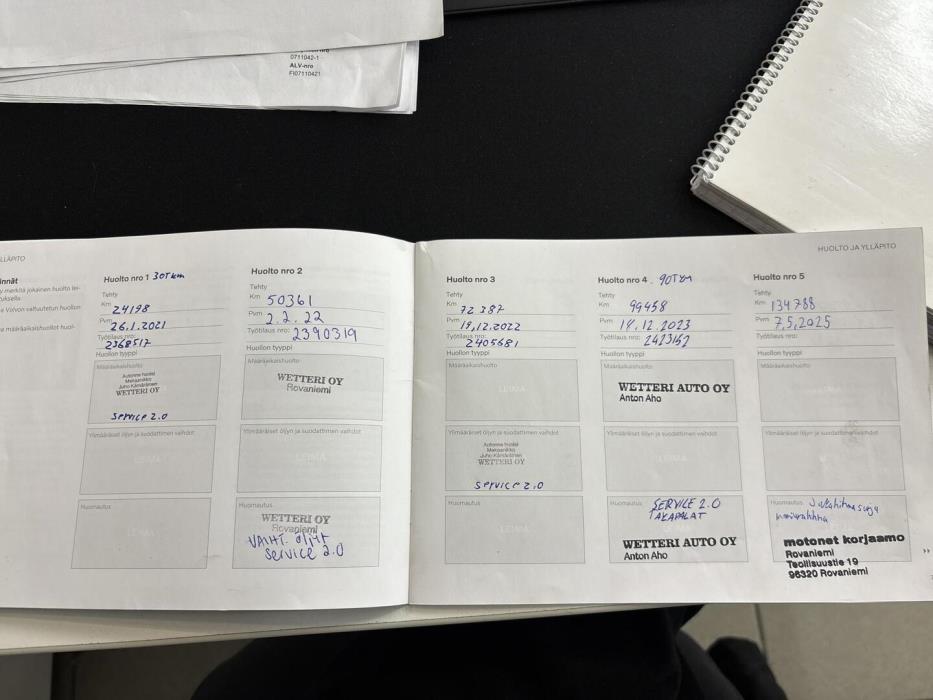 0711042-1
ALV-nro
FI07110421
LLÄPITO
HUOLTO JA YLLÄPITO
innät
y merkitä jokainen huolto lei-
tuksella.
e Volvon valtuutetun huollon
a määräaikaishuollot huol-
Huolto nro 1 30T km
Tehty
Km 24198
Pvm 26.1.2021
Työtilaus nro:
2368517
Huollon tyyppi
Määräaikaishuolto
Autonne huolsi
Mekaanikko
Juho Kämäräinen
WETTERI OY
Service 2.0
Ylimääräiset öljyn ja suodattimen vaihdot
LEIMA
Huomautus
LEIMA
Huolto nro 2
Tehty
Km 50361
Pvm 2.2.22
Työtilaus nro: 2390319
Huollon tyyppi
Määräaikaishuolto
WETTERI OY
Rovaniemi
Ylimääräiset öljyn ja suodattimen vaihdot
LEIMA
Huomautus
WETTERI OY
Rovaniemi
VAIHT. öljyt
Service 2.0
Huolto nro 3
Tehty
Km 72387
Pvm 19.12.2022
Työtilaus nro:
2405681
Huollon tyyppi
Määräaikaishuolto
LEIMA
Ylimääräiset öljyn ja suodattimen vaihdot
Autonne huolsi
Mekaanikko
Juho Kämäräinen
WETTERI OY
Service 2.0
Huomautus
LEIMA
Huolto nro 4 90Tkm
Tehty
Km 99458
Pvm 14.12.2023
Työtilaus nro: 2423152
Huollon tyyppi
Määräaikaishuolto
WETTERI AUTO OY
Anton Aho
Ylimääräiset öljyn ja suodattimen vaihdot
LEIMA
Huomautus SERVICE 2.0
JAKAPALAT
WETTERI AUTO OY
Anton Aho
Huolto nro 5
Tehty
Km 134788
Pvm 7.5.2025
Työtilaus nro:
Huollon tyyppi
Määräaikaishuolto
LEIMA
Ylimääräiset öljyn ja suodattimen vaihdot
Huomautus
motonet korjaamo
Rovaniemi
Teollisuustie 19
96320 Rovaniemi